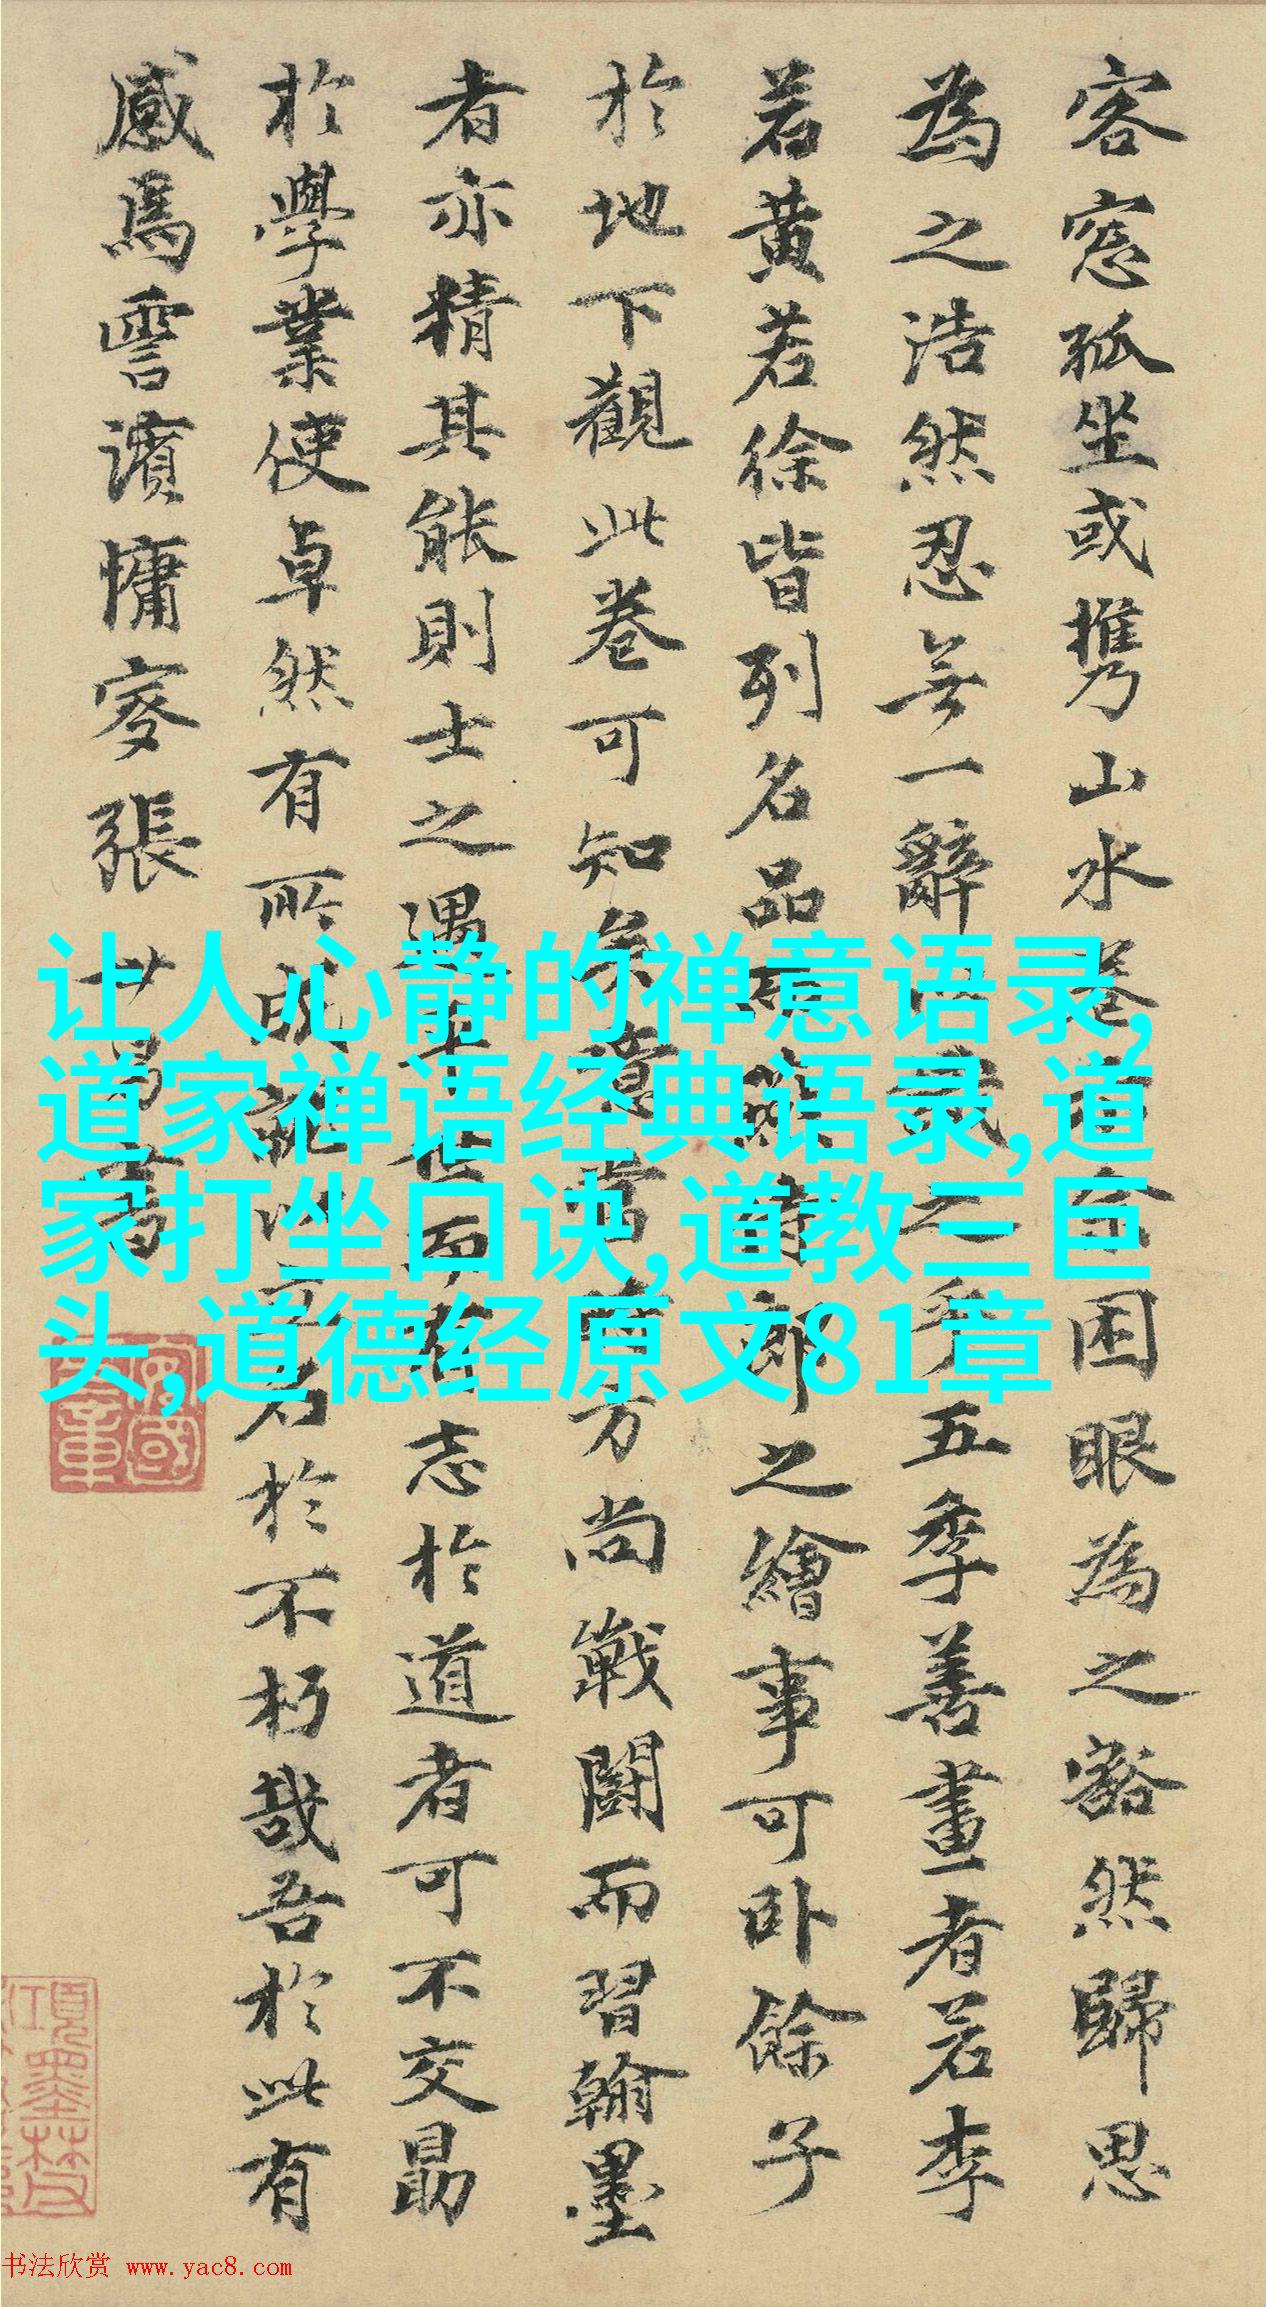 客窓孤坐或携山水卷困眼為之豁然歸思
為之浩然忍無一辭以識之乎五季善畫者若李
若黃若徐皆列名品而侍郎之繪事可卧餘子
於地下觀此卷可知矣意當方尚戰鬪而習翰墨
者亦精其能則士之遇世而志於道者可不交勗
於學業使卓然有所就以名於不朽哉吾於此有
感焉霅濱慵叟張世昌書
让人心静的禅意语录,
道家禅语经典语录,道
家打坐口诀,道教三巨
头,道德经原文81章
书法欣赏 www.yac8.com